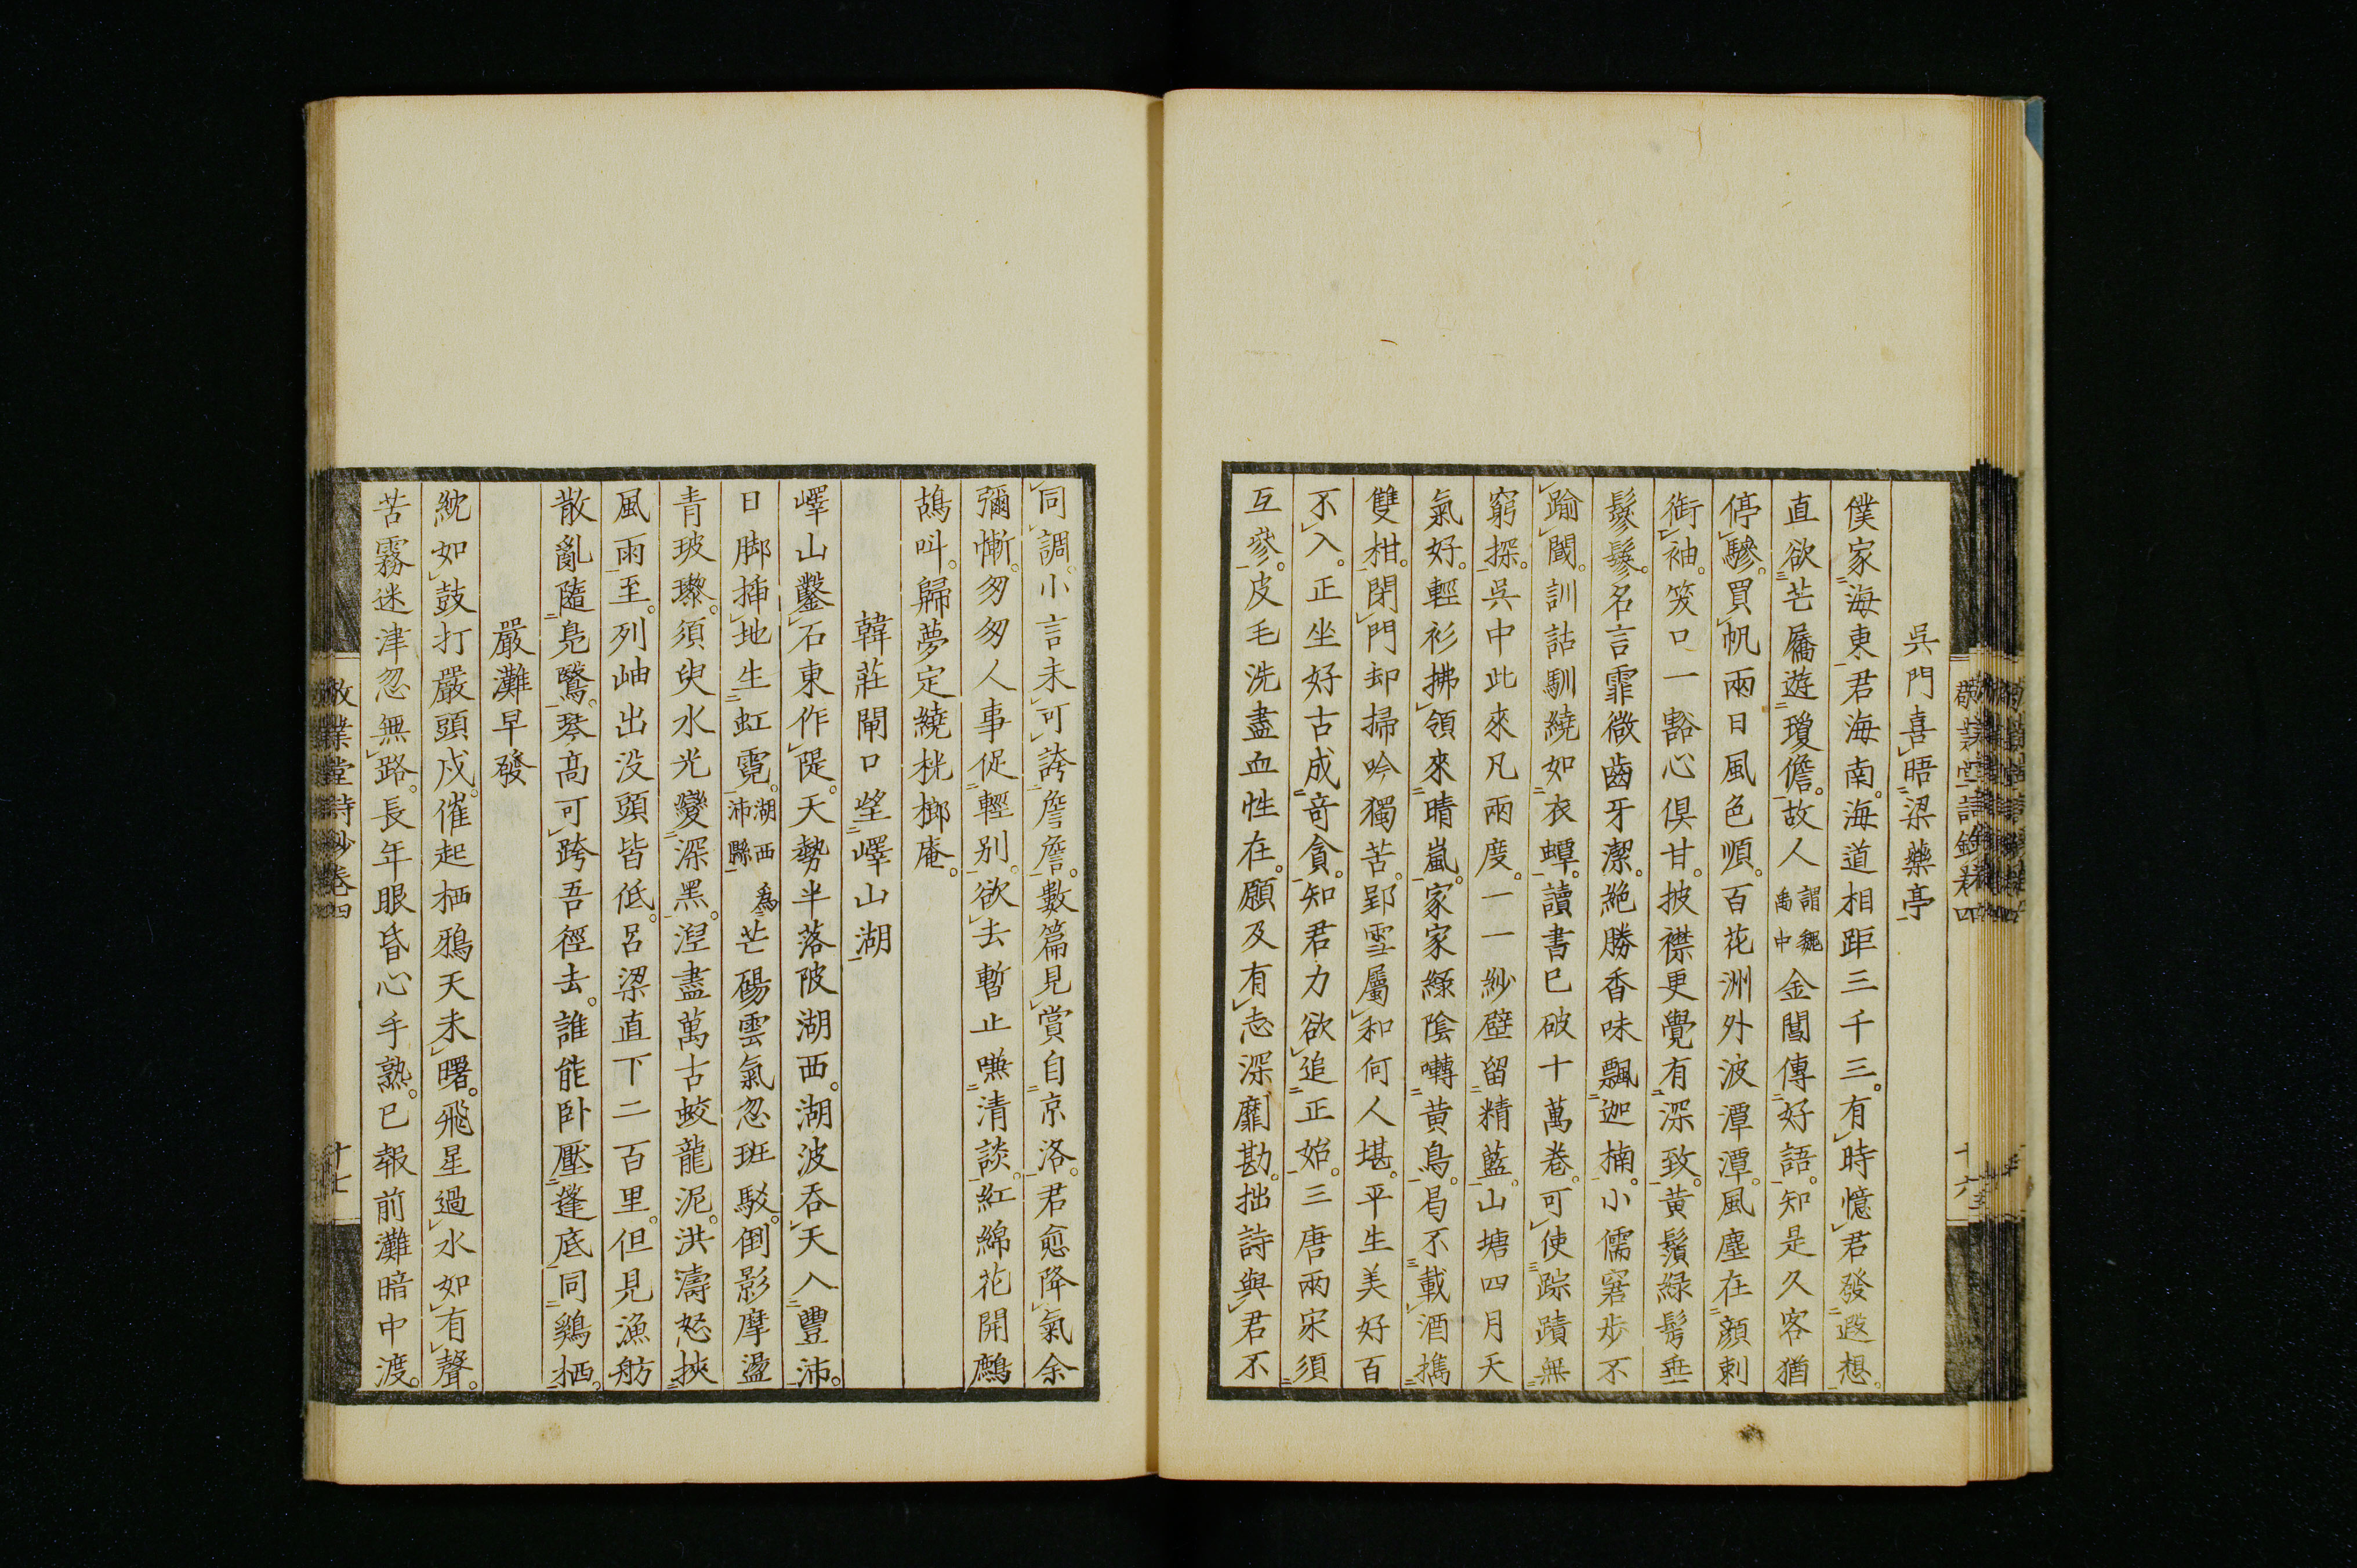 吳門喜晤梁藥亭
僕家海東君海南。海道相距三千三。有時憶君發遐想。
直欲芒屩遊瓊儋。故人謂魏禹中金閶傳好語。知是久客猶
停驂。買帆兩日風色順。百花洲外波潭潭。風塵在顏刺
銜袖。笑口一豁心俱甘。披襟更覺有深致。黃鬚綠鬢垂
鬖鬖。名言霏微齒牙潔。絶勝香味飄迦楠。小儒窘步不
踰閾。訓詁馴繞如衣蟫。讀書已破十萬卷。可使踪蹟無
窮探。吳中此來凡兩度。一一紗壁留精藍。山塘四月天
氣好。輕衫拂領來晴嵐。家家綠陰囀黃鳥。曷不載酒攜
雙柑。閉門却掃吟獨苦。郢雪屬和何人堪。平生美好百
不入。正坐好古成奇貪。知君力欲追正始。三唐兩宋須
互參。皮毛洗盡血性在。願及有志深劘勘。拙詩與君不
敬業堂詩鈔卷四
十六
同調。小言未可誇詹詹。數篇見賞自京洛。君愈降氣余
彌慚。匆匆人事促輕别。欲去暫止嗛清談。紅綿花開鷓
鴣叫。歸夢定繞桄榔庵。
韓莊閘口望嶧山湖
嶧山鑿石東作隄。天勢半落陂湖西。湖波吞天入豐沛。
日脚揷地生虹霓。湖西爲沛縣芒碭雲氣忽班駁。倒影摩盪
青玻瓈。須臾水光變深黑。湼盡萬古蛟龍泥。洪濤怒挾
風雨至。列岫出没頭皆低。呂梁直下二百里。但見漁舫
散亂隨鳧鷖。琴高可跨吾徑去。誰能卧壓蓬底同鷄栖。
嚴灘早發
紞如鼓打嚴頭戍。催起栖鴉天未曙。飛星過水如有聲。
苦霧迷津忽無路。長年眼昏心手熟。已報前灘暗中渡。
敬業堂詩鈔卷四
十七